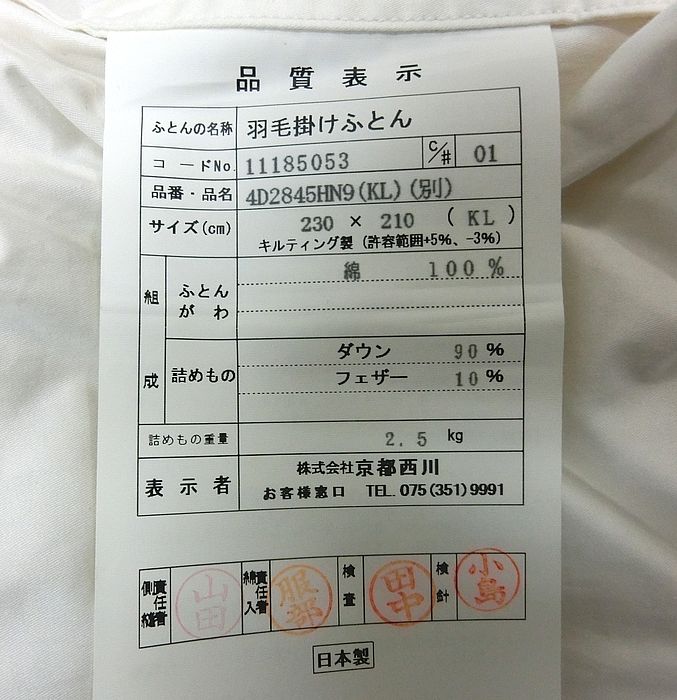 品質表示
ふとんの名称 羽毛掛けふとん
コードNo. 11185053 C/# 01
品番・品名 4D2845HN9(KL)(別)
サイズ(cm) 230 × 210 (KL)
キルティング製(許容範囲+5%、-3%)
組成 ふとんがわ 綿 100%
詰めもの ダウン 90%
フェザー 10%
詰めもの重量 2.5 kg
表示者 株式会社京都西川
お客様窓口 TEL.075(351)9991
側縫製責任者 山田 綿入責任者 服部 検査 田中 検針 小島
日本製